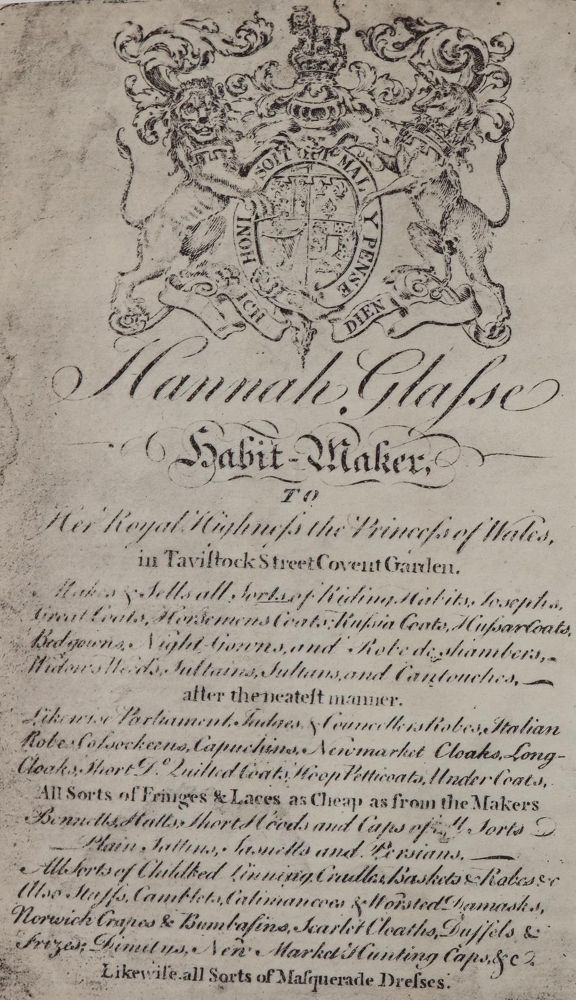 HONI SOIT QUI MAL Y PENSE
ICH DIEN
Hannah Glaſse
Habit-Maker,
TO
Her Royal Highneſs the Princeſs of Wales,
in Taviſtock Street Covent Garden.
Makes & Sells all Sorts of Riding Habits, Josephs,
Great Coats, Horsemens Coats, Ruſsia Coats, Huſsar Coats,
Bedgowns, Night-Gowns, and Robe de shambers,
Widows Weeds, Sultains, Sultans, and Cantouches,
after the neateſt manner.
Likewise Parliament, Judges, & Councellers Robes, Italian
Robes, Coſsockeens, Capuchins, Newmarket Cloaks, Long-
Cloaks, Short Do. Quilted Coats, Hoop Petticoats, Under Coats,
All Sorts of Fringes & Laces as Cheap as from the Makers
Bonnetts, Hatts, Short Hoods and Caps of all Sorts
Plain Sattins, Sasnetts and Persians,
All Sorts of Childbed Linning, Cradles, Baskets & Robes &c
Also Stuffs, Camblets, Calimancoes & Worsted Damasks,
Norwich Crapes & Bumbaſins, Scarlet Cloaths, Duffels &
Frizes, Dimitys, New Market Hunting Caps, &c.
Likewiſe all Sorts of Maſquerade Dreſses.